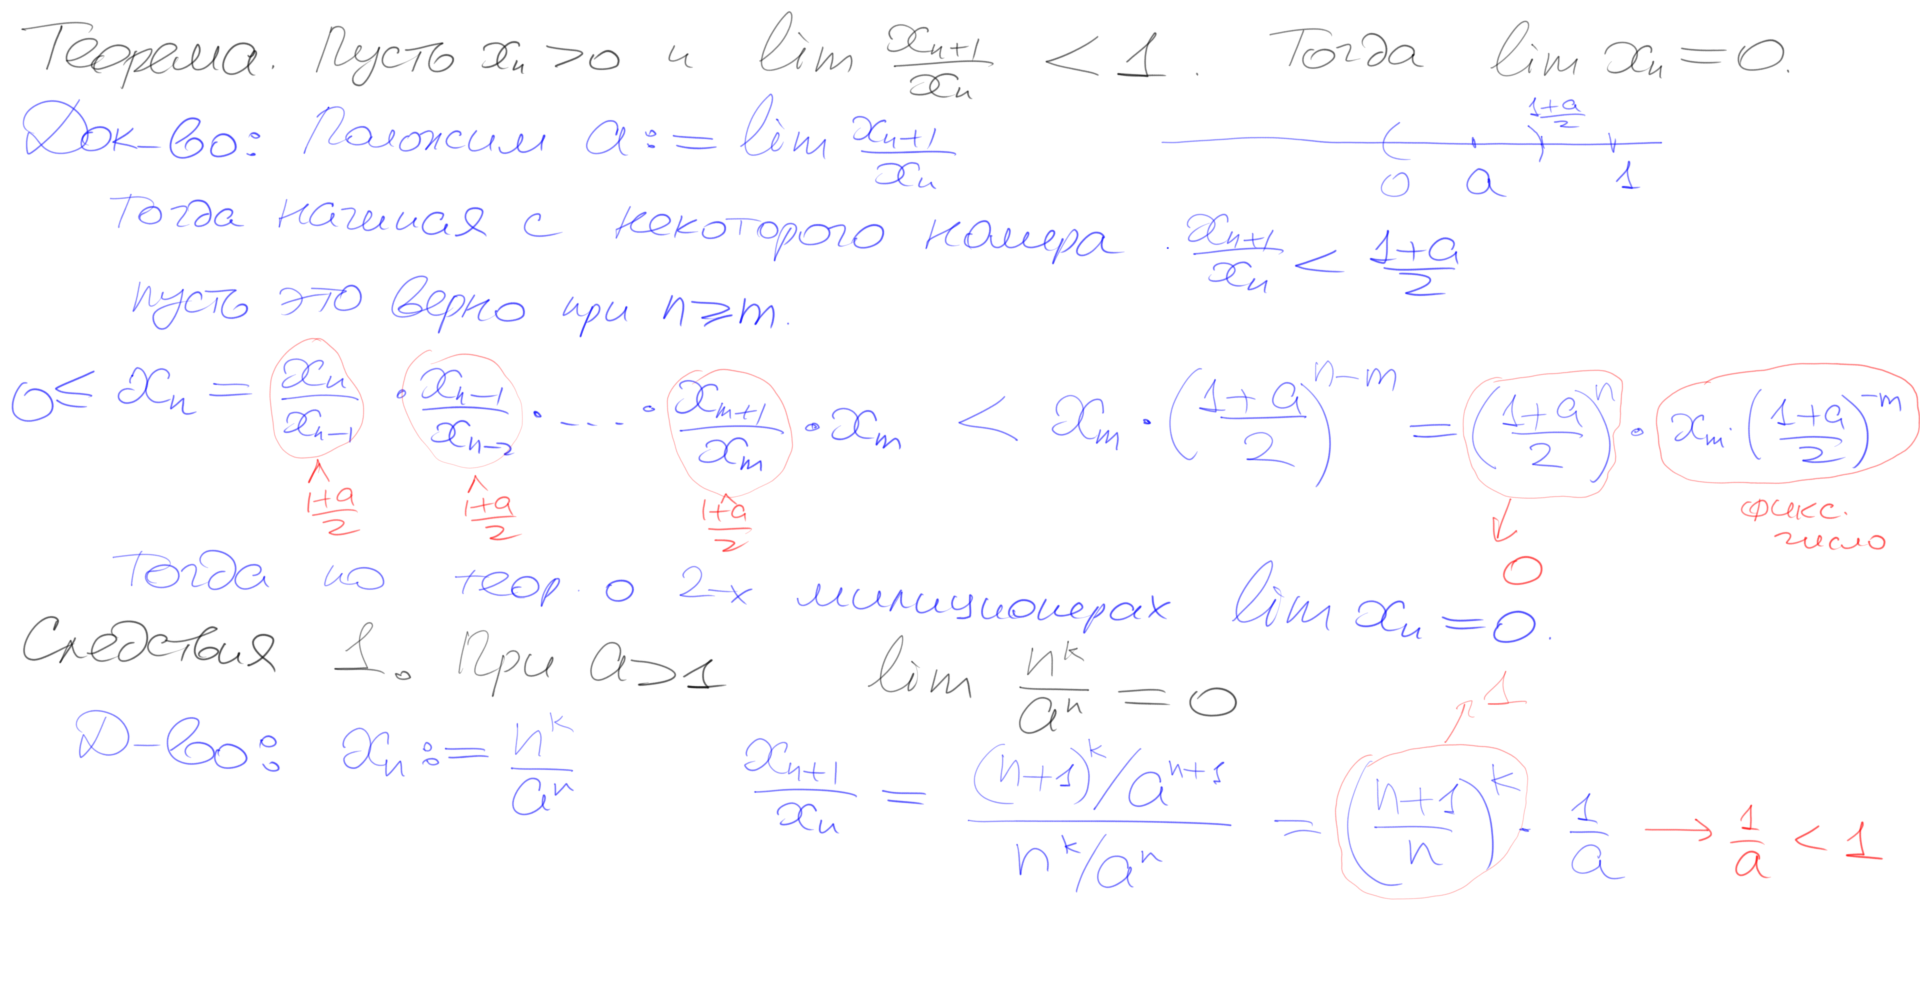 Теорема. Пусть xₙ > 0 и lim xₙ₊₁/xₙ < 1. Тогда lim xₙ = 0.
Док-во: Положим a := lim xₙ₊₁/xₙ
(1+a)/2
0 a 1
Тогда начиная с некоторого номера xₙ₊₁/xₙ < (1+a)/2
пусть это верно при n ⩾ m.
0 ≤ xₙ = xₙ/xₙ₋₁ · xₙ₋₁/xₙ₋₂ · … · xₘ₊₁/xₘ · xₘ < xₘ · ((1+a)/2)ⁿ⁻ᵐ = ((1+a)/2)ⁿ · xₘ · ((1+a)/2)⁻ᵐ
^ ^ ^
(1+a)/2 (1+a)/2 (1+a)/2 ↓ 0 фикс. число
Тогда по теор. о 2-х милиционерах lim xₙ = 0.
Следствия 1. При a > 1 lim nᵏ/aⁿ = 0
Д-во: xₙ := nᵏ/aⁿ xₙ₊₁/xₙ = ((n+1)ᵏ/aⁿ⁺¹)/(nᵏ/aⁿ) = ((n+1)/n)ᵏ · 1/a → 1/a < 1
↗ 1